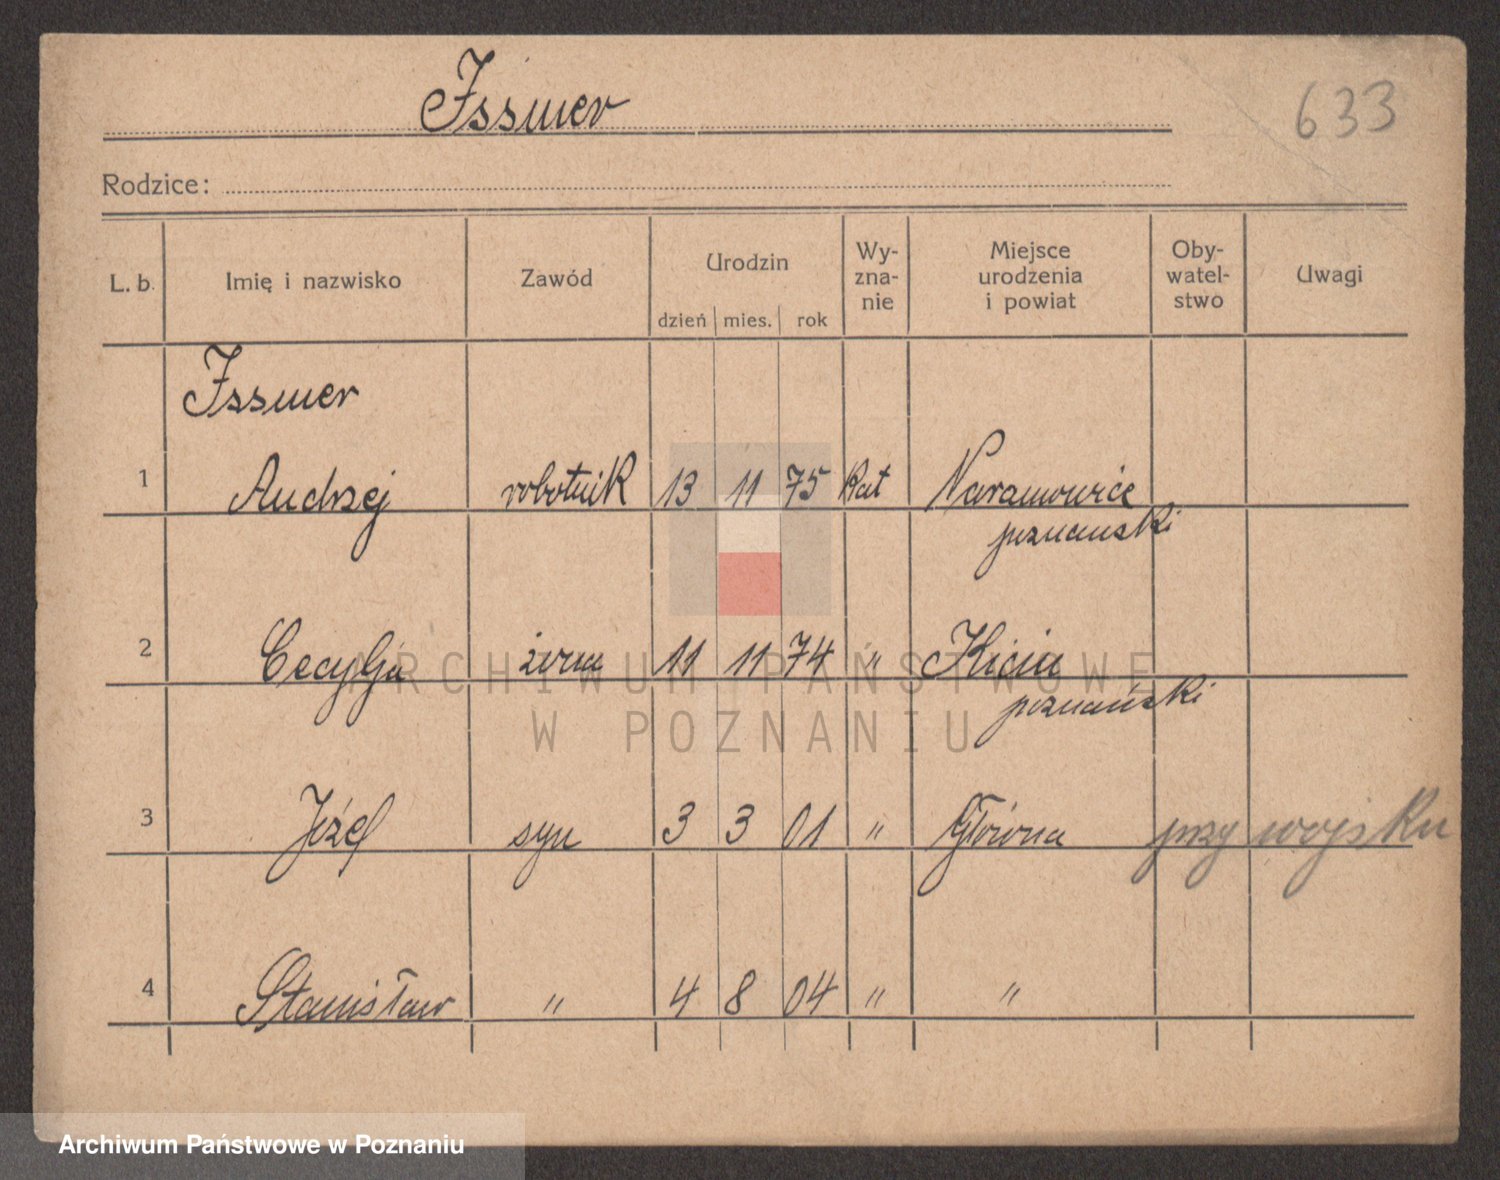 Issmer
633
Rodzice:
L. b. Imię i nazwisko Zawód Urodzin Wy-znanie Miejsce urodzenia i powiat Oby-watel-stwo Uwagi
dzień mies. rok
Issmer
1 Andrzej robotnik 13 11 75 kat Naramowice
poznanski
2 Cecylja żona 11 11 74 " Kicin
poznański
3 Józef syn 3 3 01 " Główna przy wojsku
4 Stanisław " 4 8 04 " "
ARCHIWUM PAŃSTWOWE
W POZNANIU
Archiwum Państwowe w Poznaniu